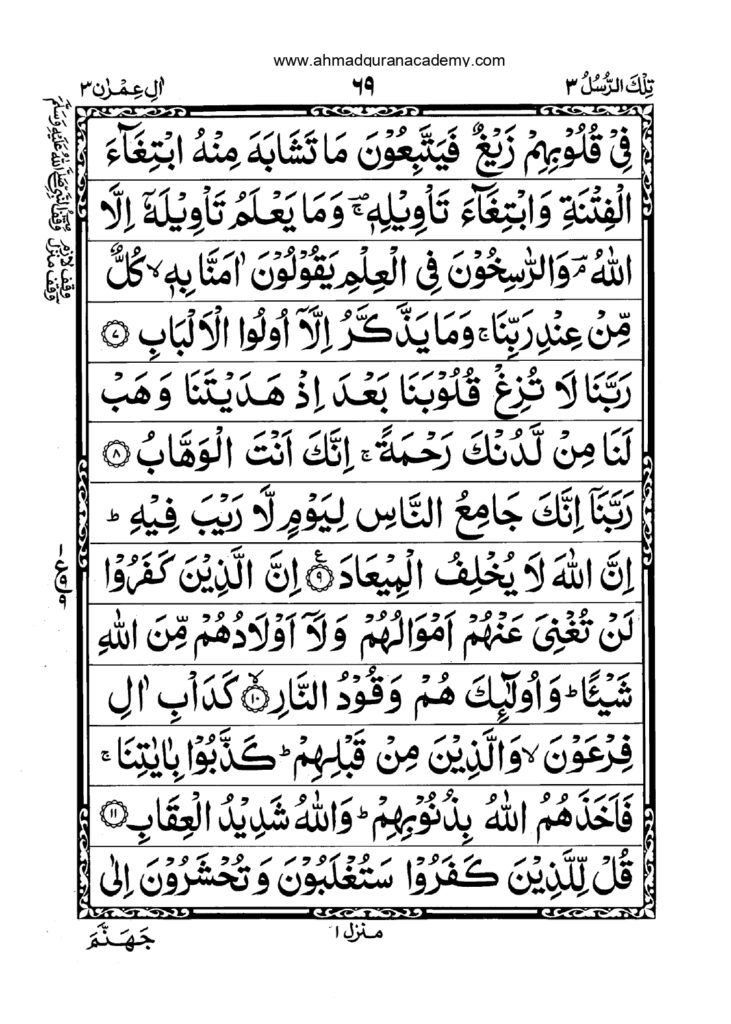 www.ahmadquranacademy.com
تِلْكَ الرُّسُلُ ٣
٦٩
اٰلِ عِمْرٰن ٣
فِیْ قُلُوْبِهِمْ زَیْغٌ فَیَتَّبِعُوْنَ مَا تَشَابَهَ مِنْهُ ابْتِغَآءَ
الْفِتْنَةِ وَابْتِغَآءَ تَاْوِیْلِهٖ ۚ وَمَا یَعْلَمُ تَاْوِیْلَهٗۤ اِلَّا
اللّٰهُ ۘ وَالرّٰسِخُوْنَ فِی الْعِلْمِ یَقُوْلُوْنَ اٰمَنَّا بِهٖ ۙ كُلٌّ
مِّنْ عِنْدِ رَبِّنَا ۚ وَمَا یَذَّكَّرُ اِلَّاۤ اُولُوا الْاَلْبَابِ ۝٧
رَبَّنَا لَا تُزِغْ قُلُوْبَنَا بَعْدَ اِذْ هَدَیْتَنَا وَهَبْ
لَنَا مِنْ لَّدُنْكَ رَحْمَةً ۚ اِنَّكَ اَنْتَ الْوَهَّابُ ۝٨
رَبَّنَاۤ اِنَّكَ جَامِعُ النَّاسِ لِیَوْمٍ لَّا رَیْبَ فِیْهِ ؕ
اِنَّ اللّٰهَ لَا یُخْلِفُ الْمِیْعَادَ ۝٩ اِنَّ الَّذِیْنَ كَفَرُوْا
لَنْ تُغْنِیَ عَنْهُمْ اَمْوَالُهُمْ وَلَاۤ اَوْلَادُهُمْ مِّنَ اللّٰهِ
شَیْـًٔا ؕ وَاُولٰٓئِكَ هُمْ وَقُوْدُ النَّارِ ۝١٠ كَدَاْبِ اٰلِ
فِرْعَوْنَ ۙ وَالَّذِیْنَ مِنْ قَبْلِهِمْ ؕ كَذَّبُوْا بِاٰیٰتِنَا ۚ
فَاَخَذَهُمُ اللّٰهُ بِذُنُوْبِهِمْ ؕ وَاللّٰهُ شَدِیْدُ الْعِقَابِ ۝١١
قُلْ لِّلَّذِیْنَ كَفَرُوْا سَتُغْلَبُوْنَ وَتُحْشَرُوْنَ اِلٰی
منزل ١
جَهَنَّمَ
وقف النبی صلی اللہ علیہ وسلم
وقف لازم
وقف منزل